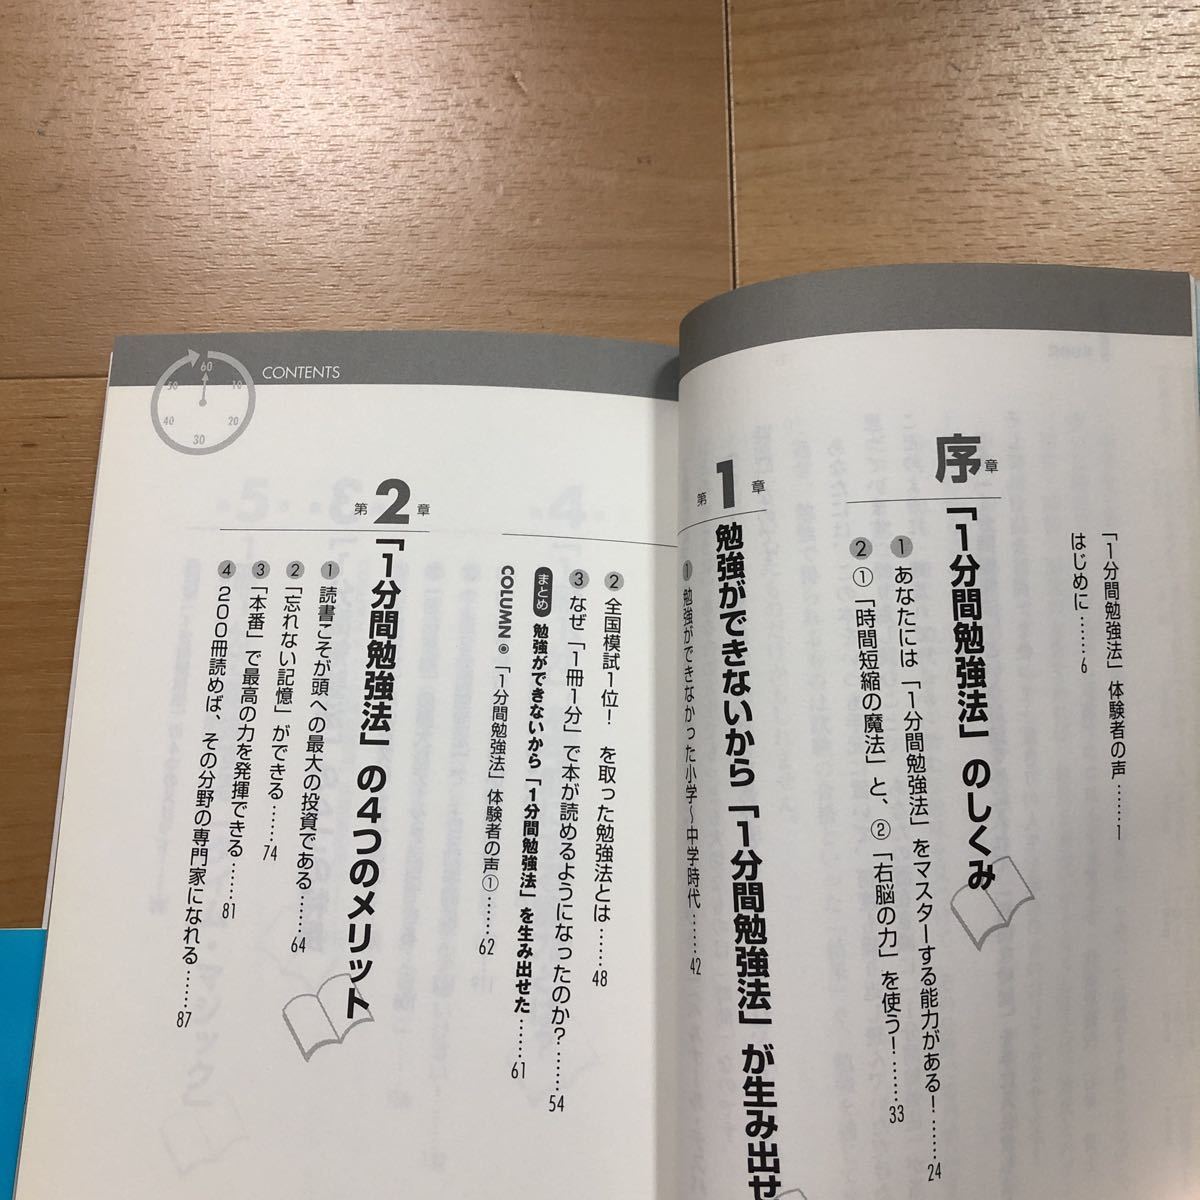 「1分間勉強法」体験者の声……1
はじめに……6
序章
「1分間勉強法」のしくみ
① あなたには「1分間勉強法」をマスターする能力がある!……24
② ①「時間短縮の魔法」と、②「右脳の力」を使う!……33
第1章
勉強ができないから「1分間勉強法」が生み出せ
① 勉強ができなかった小学〜中学時代……42
CONTENTS
60
10
20
30
40
50
② 全国模試1位! を取った勉強法とは……48
③ なぜ「1冊1分」で本が読めるようになったのか?……54
まとめ 勉強ができないから「1分間勉強法」を生み出せた……61
COLUMN◉「1分間勉強法」体験者の声①……62
第2章
「1分間勉強法」の4つのメリット
① 読書こそが頭への最大の投資である……64
② 「忘れない記憶」ができる……74
③ 「本番」で最高の力を発揮できる……81
④ 200冊読めば、その分野の専門家になれる……87